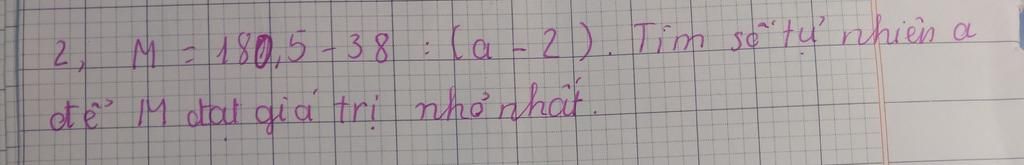 2, M = 180,5 - 38 : (a - 2). Tìm số tự nhiên a
để M đạt giá trị nhỏ nhất.